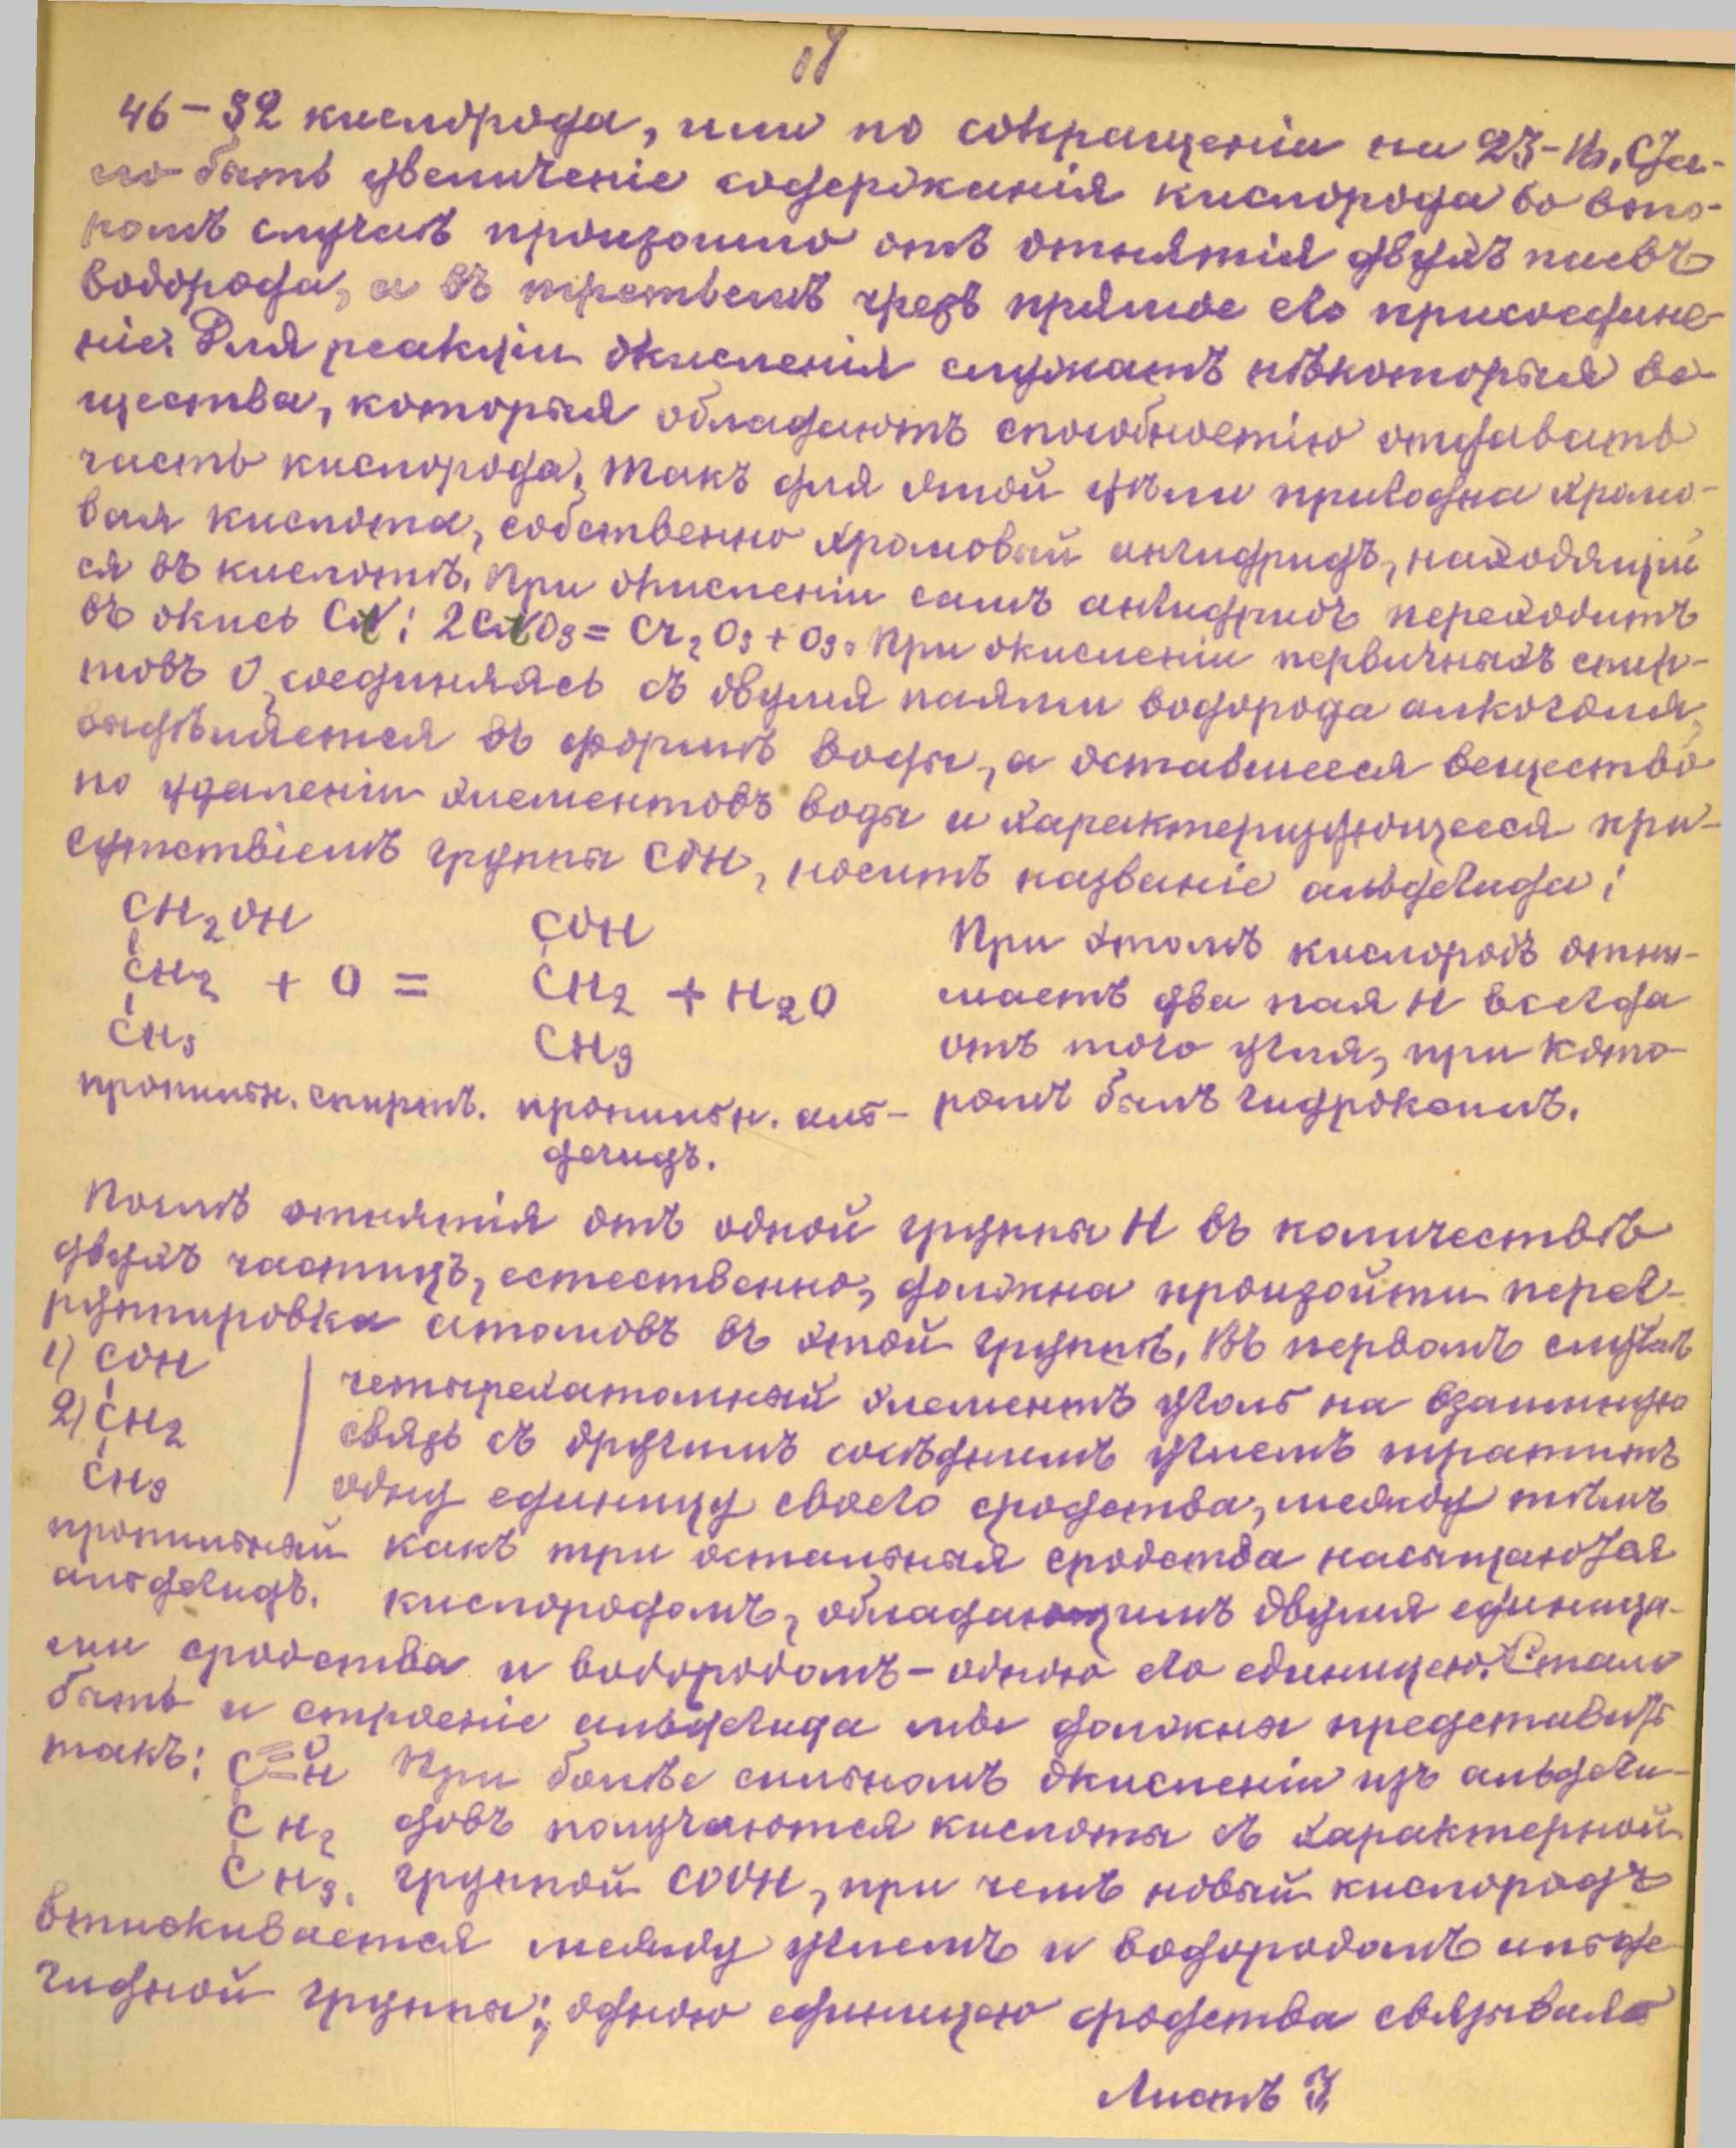 46–32 кислорода, или по сокращеніи на 23–16. Ста-
ло быть увеличеніе содержанія кислорода во вто-
ромъ случаѣ произошло отъ отнятія двухъ паевъ
водорода, а въ третьемъ чрезъ прямое его присоедине-
ніе. Для реакціи окисленія служатъ нѣкоторыя ве-
щества, которыя обладаютъ способностію отдавать
часть кислорода. Такъ для этой цѣли пригодна хромо-
вая кислота, собственно хромовый ангидридъ, находящій
ся въ кислотѣ. При окисленіи самъ ангидридъ переходитъ
въ окись Cr: 2CrO3 = Cr2O3 + O3. При окисленіи первичныхъ спир-
товъ O, соединяясь съ двумя паями водорода алкоголя,
выдѣляется въ формѣ воды, а оставшееся вещество
по удаленіи элементовъ воды и характеризующееся при-
сутствіемъ группы COH, носитъ названіе альдегида:
CH2OH COH При этомъ кислородъ отни-
CH2 + O = CH2 + H2O маетъ два пая H всегда
CH3 CH3 отъ того угля, при кото-
пропильн. спиртъ. пропильн. аль- ромъ былъ гидроксилъ.
дегидъ.
Послѣ отнятія отъ одной группы H въ количествѣ
двухъ частицъ, естественно, должна произойти перег-
руппировка атомовъ въ этой группѣ. Въ первомъ случаѣ
1) COH четырехатомный элементъ уголь на взаимную
2) CH2 связь съ другимъ сосѣднимъ углемъ тратитъ
CH3 одну единицу своего сродства, между тѣмъ
пропильный какъ три остальныя сродства насыщаются
альдегидъ. кислородомъ, обладающимъ двумя единица-
ми сродства и водородомъ – одною его единицею. Стало
быть и строеніе альдегида мы должны представить
такъ: C≡O H При болѣе сильномъ окисленіи изъ альдеги-
CH2 довъ получаются кислоты съ характерной
CH3. группой COOH, при чемъ новый кислородъ
втискивается между углемъ и водородомъ альде
гидной группы; одною единицею сродства связывая
Листъ 3,